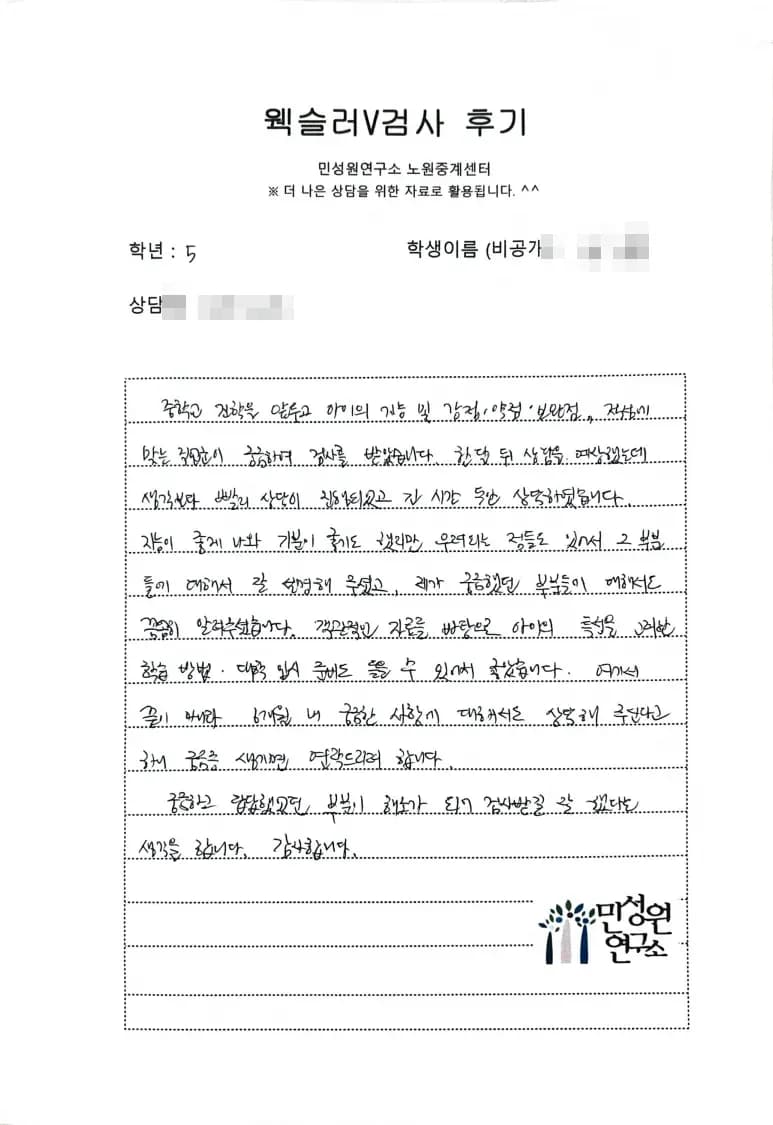 웩슬러V검사 후기
민성원연구소 노원중계센터
※ 더 나은 상담을 위한 자료로 활용됩니다. ^^
학년 : 5
학생이름 (비공개
상담
중학교 진학을 앞두고 아이의 지능 및 강점·약점·보완점, 적성에
맞는 직업군이 궁금하여 검사를 받았습니다. 한달 뒤 상담을 예상했는데
생각보다 빨리 상담이 진행되었고 긴 시간 동안 상담하였습니다.
지능이 좋게 나와 기분이 좋기도 했지만 우려되는 점들도 있어서 그 부분
들에 대해서 잘 설명해 주셨고, 제가 궁금했던 부분들에 대해서도
꼼꼼히 알려주셨습니다. 객관적인 자료를 바탕으로 아이의 특성을 고려한
학습 방법·대학 입시 준비도 들을 수 있어서 좋았습니다. 여기서
끝이 아니라 6개월 내 궁금한 사항에 대해서도 상담해 주신다고
하니 궁금증 생기면 연락드리려 합니다.
궁금하고 답답했었던 부분이 해소가 되어 검사받길 잘 했다는
생각을 합니다. 감사합니다.
민성원
연구소